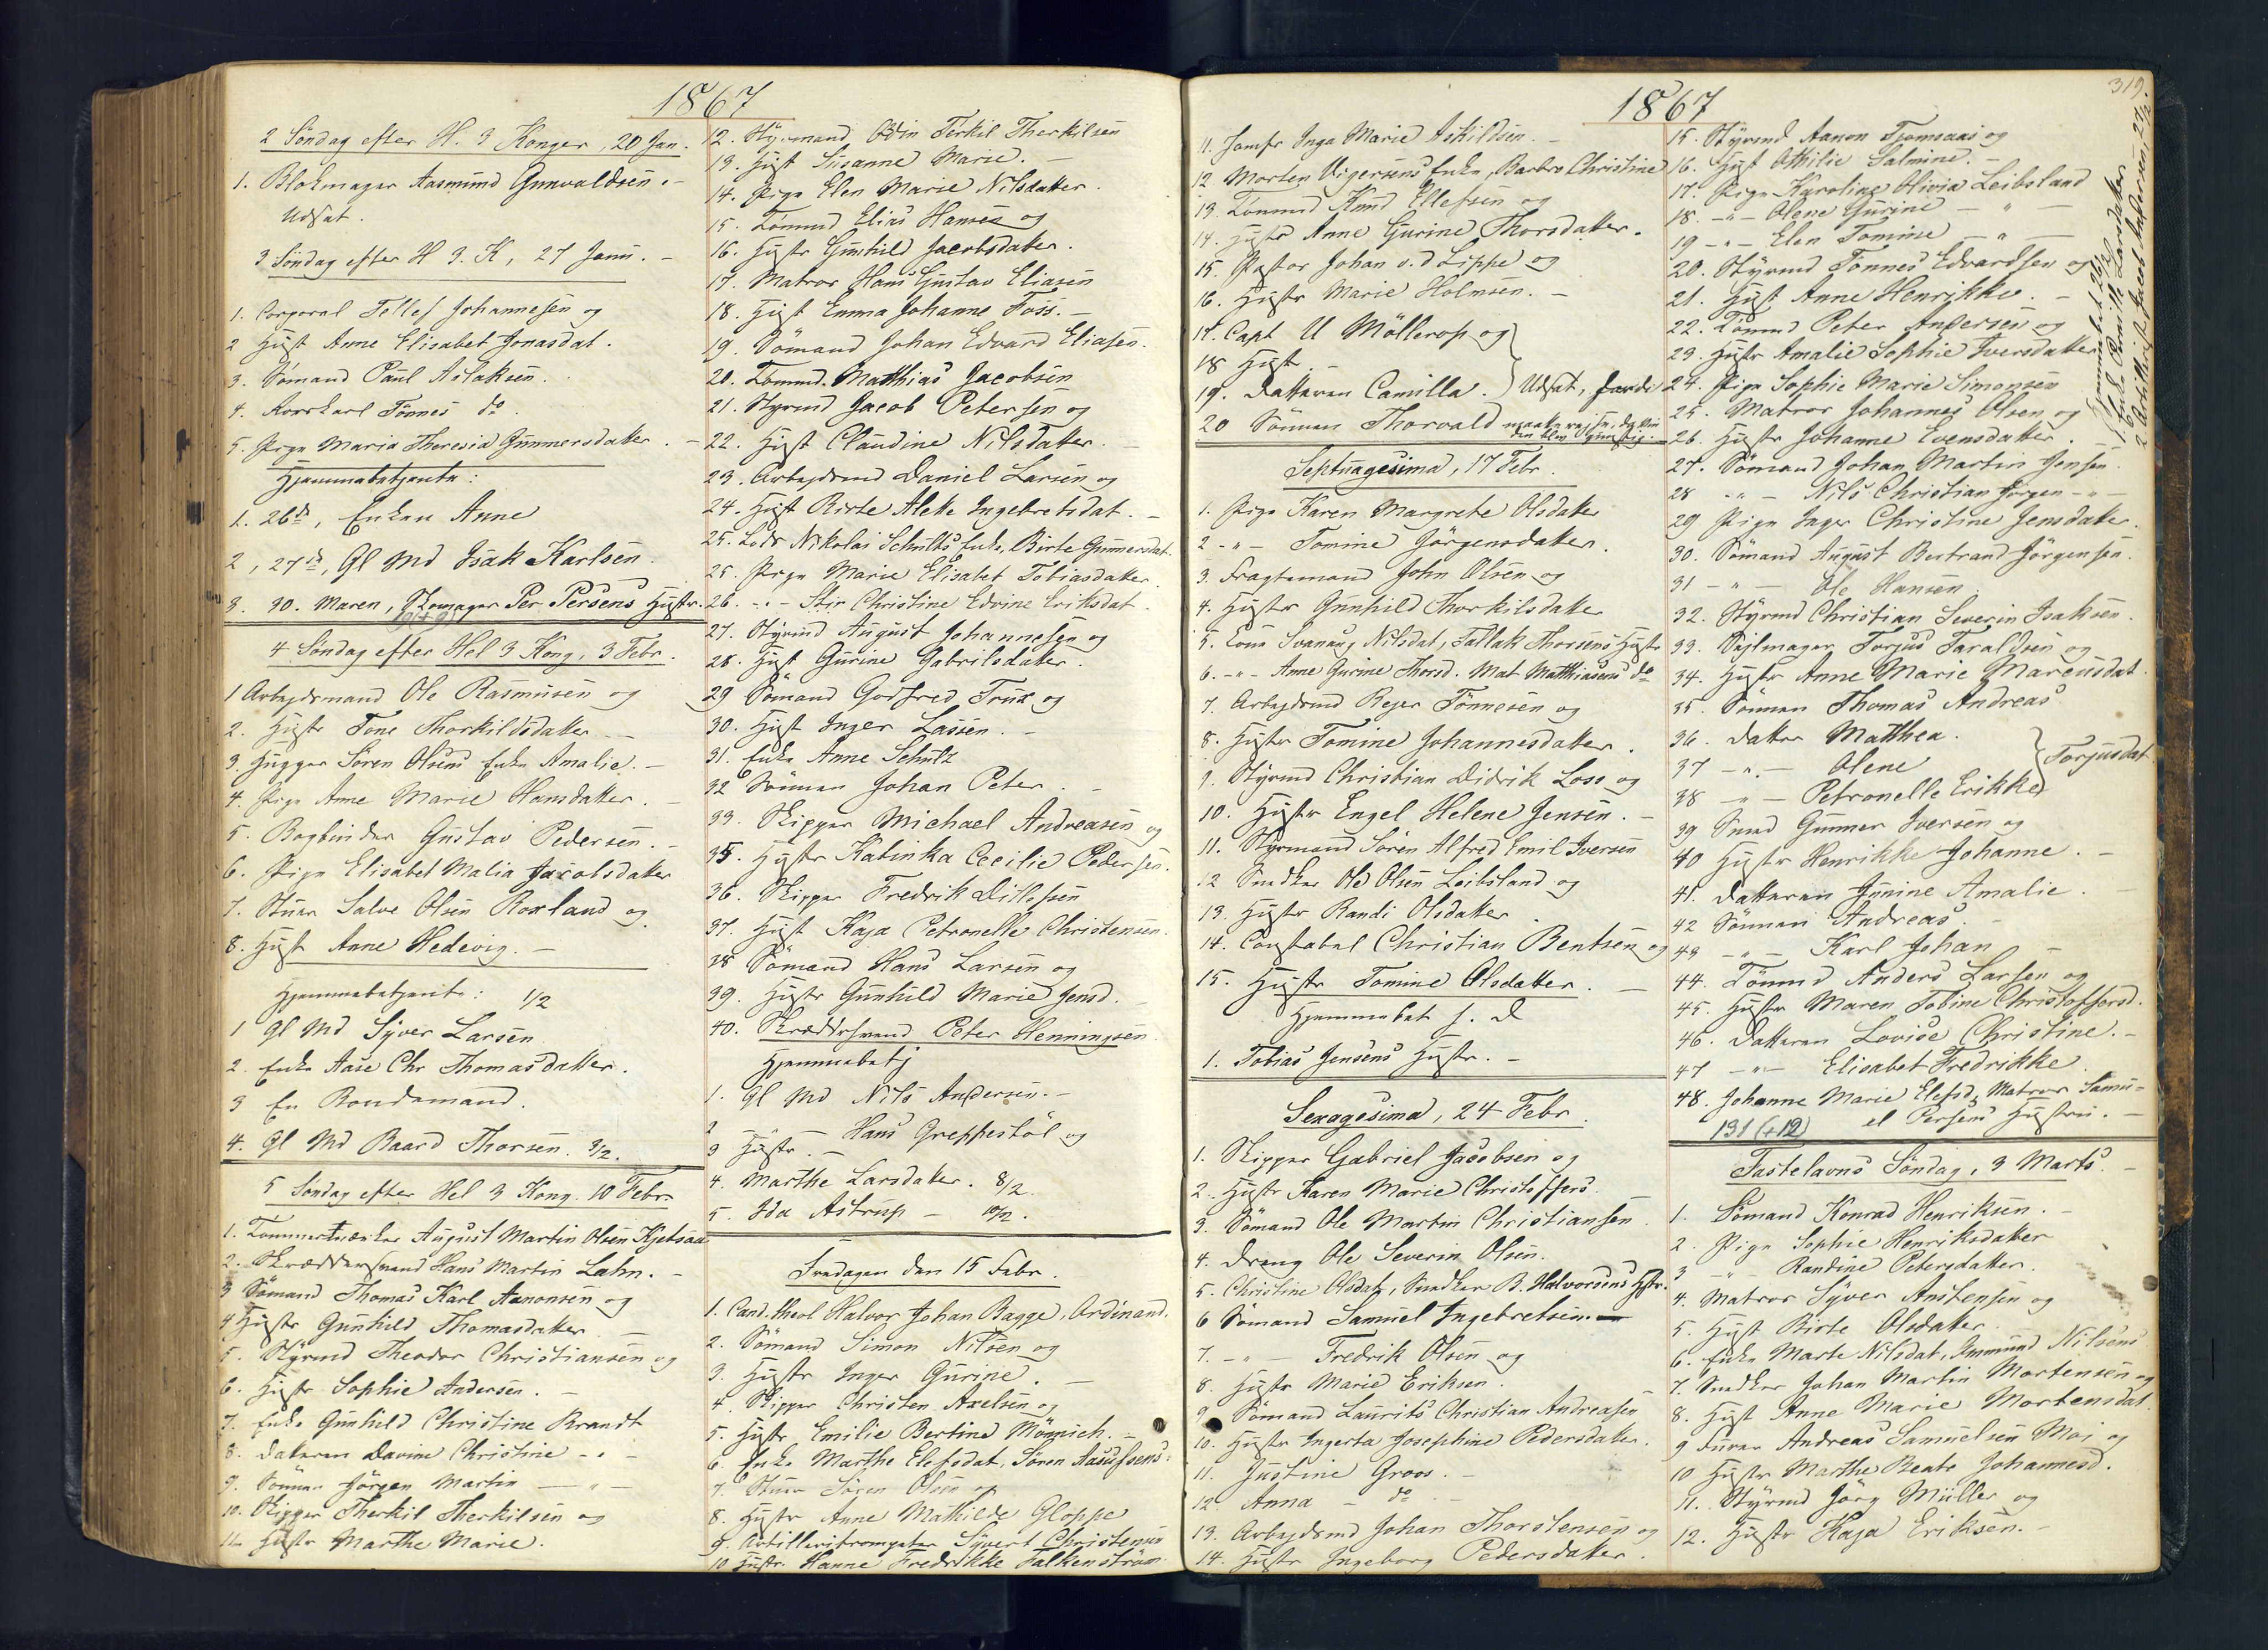 1867
2 Søndag efter H. 3 Konger, 20 Jan.
1. Blokmager Aasmund Gunvaldsen.
Udsat.
3 Søndag efter H 3. K, 27 Janu.
1. Corporal Tellef Johannesen og
2 Hust Anne Elisabet Jonasdat.
3. Sømand Paul Aslaksen.
4. Tønnes do.
5. Pige Maria Theresia Gunnersdatter.
Hjemmebetjente:
1. 26de, Enken Anne
2, 27de, Gl Md Isak Karlsen
3. 30. Maren, Skomager Per Persens Hustr.
4 Søndag efter Hel 3 Kong. 3 Febr.
1 Arbejdsmand Ole Rasmusen og
2. Hustr Tone Thorkildsdatter
3. Hugger Søren Olsens Enke Amalie.
4. Pige Anne Marie Hansdatter.
5. Bogbinder Gustav Pedersen.
6. Pige Elisabet Malia Jacobsdatter
7. Stuer Salve Olsen Roxland og
8. Hust Anne Hedevig.
Hjemmebetjente: 1/2
1 Gl Md Syver Larsen
2. Enke Aase Chr Thomasdatter.
3 En Bondemand.
4. Gl Md Baard Thorsen. 3/2.
5 Søndag efter Hel 3 Kong. 10 Febr
1. Tømmermærker August Martin Olsen Kjetsaa
2. Skræddersvend Hans Martin Lahn.
3 Sømand Thomas Karl Aanonsen og
4 Hustr Gunhild Thomasdatter
5. Styrmd Theodor Christiansen og
6. Hustr Sophie Andersen.
7. Enke Gunhild Christine Brandt
8. Datteren Davine Christine - " -
9. Sønnen Jørgen Martin - " -
10. Skipper Therkil Therkilsen og
11. Hustr Marthe Marie.
12. Styrmand Odin Terkel Therkilsen
13. Hust Susanne Marie.
14. Pige Elen Marie Nilsdatter.
15. Tømmd Elias Hansen og
16. Hustr Gunhild Jacobsdatter.
17. Matros Hans Gustav Eliasen
18. Hust Emma Johanne Foss.
19. Sømand Johan Edvard Eliasen.
20. Tømmd. Matthias Jacobsen
21. Styrmd Jacob Petersen og
22. Hust Claudine Nilsdatter.
23. Arbejdsmd Daniel Larsen og
24. Hust Birte Aleke Ingebretsdat.
25. Lods Nikolai Schults Enke, Birte Gunnersdat.
25. Pige Marie Elisabet Tobiasdatter
26. - " - Stin Christine Edvine Eriksdat.
27. Styrmd August Johannesen og
28. Hust Gurine Gabrilsdatter.
29 Sømand Godfred Trux og
30. Hust Inger Lassen.
31. Enke Anne Schultz
32 Sønnen Johan Peter.
33. Skipper Michael Andreasen og
35. Hustr Katinka Cecilie Pedersen.
36. Skipper Fredrik Ditlefsen
37. Hust Kaja Petronelle Christensen.
38 Sømand Hans Larsen og
39. Hustr Gunhild Marie Jensd.
40. Skræddersvend Peter Henningsen
Hjemmebetj
1. Gl Md Nils Andersen.
2 - " - Hans Greppestøl og
3 Hustr.
4. Marthe Larsdatter. 8/2.
5. Ida Astrup - 10/2.
Fredagen den 15 Febr.
1. Cand. theol Halvor Johan Bagge, Ordinand.
2. Sømand Simon Nilsen og
3. Hustr Inger Gurine.
4. Skipper Christen Axelsen og
5. Hustr Emilie Bertine Mønnich.
6. Enke Marthe Elefsdat, Søren Aasulfsens.
7. Stuer Søren Olsen og
8. Hustr Anne Mathilde Gloppe
9. Artilleritrompeter Syvert Christensen
10 Hustr Hanne Fredrikke Falkenstrøm
1867
319.
11. Jomfr Inga Marie Askildsen.
12 Morten Vigersens Enke, Barbro Christine
13. Tømmd Knud Ellefsen og
14. Hustr Anne Gurine Thorsdatter.
15. Pastor Johan v. d Lippe og
16. Hustr Marie Holmsen.
17. Capt U Møllerop og
18 Hustr
19. Datteren Camilla. Udsat,
20 Sønnen Thorvald
Septuagesima, 17 Febr.
1. Pige Karen Margrete Olsdatter
2 - " - Tomine Jørgensdatter.
3. Fragtemand John Olsen og
4. Hustr Gunhild Thorkilsdatter
5. Svanaug Nilsdat, Tallak Thorsens Hustr
6. - " - Anne Gurine Thorsd. Mat Matthiasens do
7. Arbejdsmd Rejer Tønnesen og
8. Hustr Tomine Johannesdatter.
9. Styrmd Christian Didrik Loss og
10. Hustr Engel Helene Jensen.
11. Styrmand Søren Alfred Emil Iversen
12 Snedker Ole Olsen Leibsland og
13. Hustr Randi Olsdatter
14. Constabel Christian Bentsen og
15. Hustr Tomine Olsdatter.
Hjemmebet s. D
1. Tobias Jensens Hustr.
Sexagesima, 24 Febr.
1. Skipper Gabriel Jacobsen og
2. Hustr Karen Marie Christoffers.
3. Sømand Ole Martin Christiansen
4. Dreng Ole Severin Olsen.
5. Christine Olsdat, Snedker B. Halvorsens Hstr.
6 Sømand Samuel Ingebretsen.
7. - " - Fredrik Olsen og
8. Hustr Marie Eriksen.
9 Sømand Laurits Christian Andreasen
10. Hustr Ingerta Josephine Pedersdatter.
11. Justine Groos.
12. Anna - do
13. Arbejdsmd Johan Thorstensen og
14. Hustr Ingeborg Pedersdatter.
15. Styrmd Aanon Tjomsaas og
16. Hust Othilie Salmine.
17. Pige Karoline Olivia Leibsland
18. - " - Olene Gurine - " -
19 - " - Elen Tomine - " -
20. Styrmd Tønnes Edvardsen og
21. Hust Anne Henrikke.
22. Tømmd Peter Andersen og
23. Hustr Amalie Sophie Iversdatter
24. Pige Sophie Marie Simonsen
25. Matros Johannes Olsen og
26. Hustr Johanne Evensdatter.
27. Sømand Johan Martin Jensen
28 - " - Nils Christian Jørgen - " -
29 Pige Inger Christine Jensdatter.
30. Sømand August Bertrand Jørgensen.
31 - " - Ole Hansen.
32. Styrmd Christian Severin Isaksen.
33. Sejlmager Torjus Taraldsen og
34. Hustr Anne Marie Marcusdat.
35. Sønnen Thomas Andreas
36. Datter Matthea.
37 - " - Olene Torjusdat.
38 - " - Petronelle Erikke
39 Smed Gunner Iversen og
40 Hustr Henrikke Johanne.
41. Datteren Junine Amalie.
42 Sønnen Andreas
43 - " - Karl Johan
44. Tømmd Anders Larsen og
45. Hustr Maren Tobine Christoffersd.
46. Datteren Lovise Christine.
47 - " - Elisabet Fredrikke
48. Johanne Marie Elefsd, Matros Samu-
el Persens Hustru.
131 (+12)
Fastelavns Søndag, 3 Marts.
1. Sømand Konrad Henriksen.
2. Pige Sophie Henriksdatter
3 - " - Randine Petersdatter.
4. Matros Syver Anstensen og
5. Hust Birte Olsdatter
6. Enke Marte Nilsdat, Nilsens
7. Snedker Johan Martin Mortensen og
8. Hust Anne Marie Mortensdat.
9 Furer Andreas Samuelsen Moi og
10 Hustr Marthe Beate Johannesd.
11. Styrmd Jørg Müller og
12. Hustr Kaja Eriksen.
Hjemmebet. 26/2
1. Enke Pernille Larsdatter
2 Artillerist Jacob Andersen, 27/2.